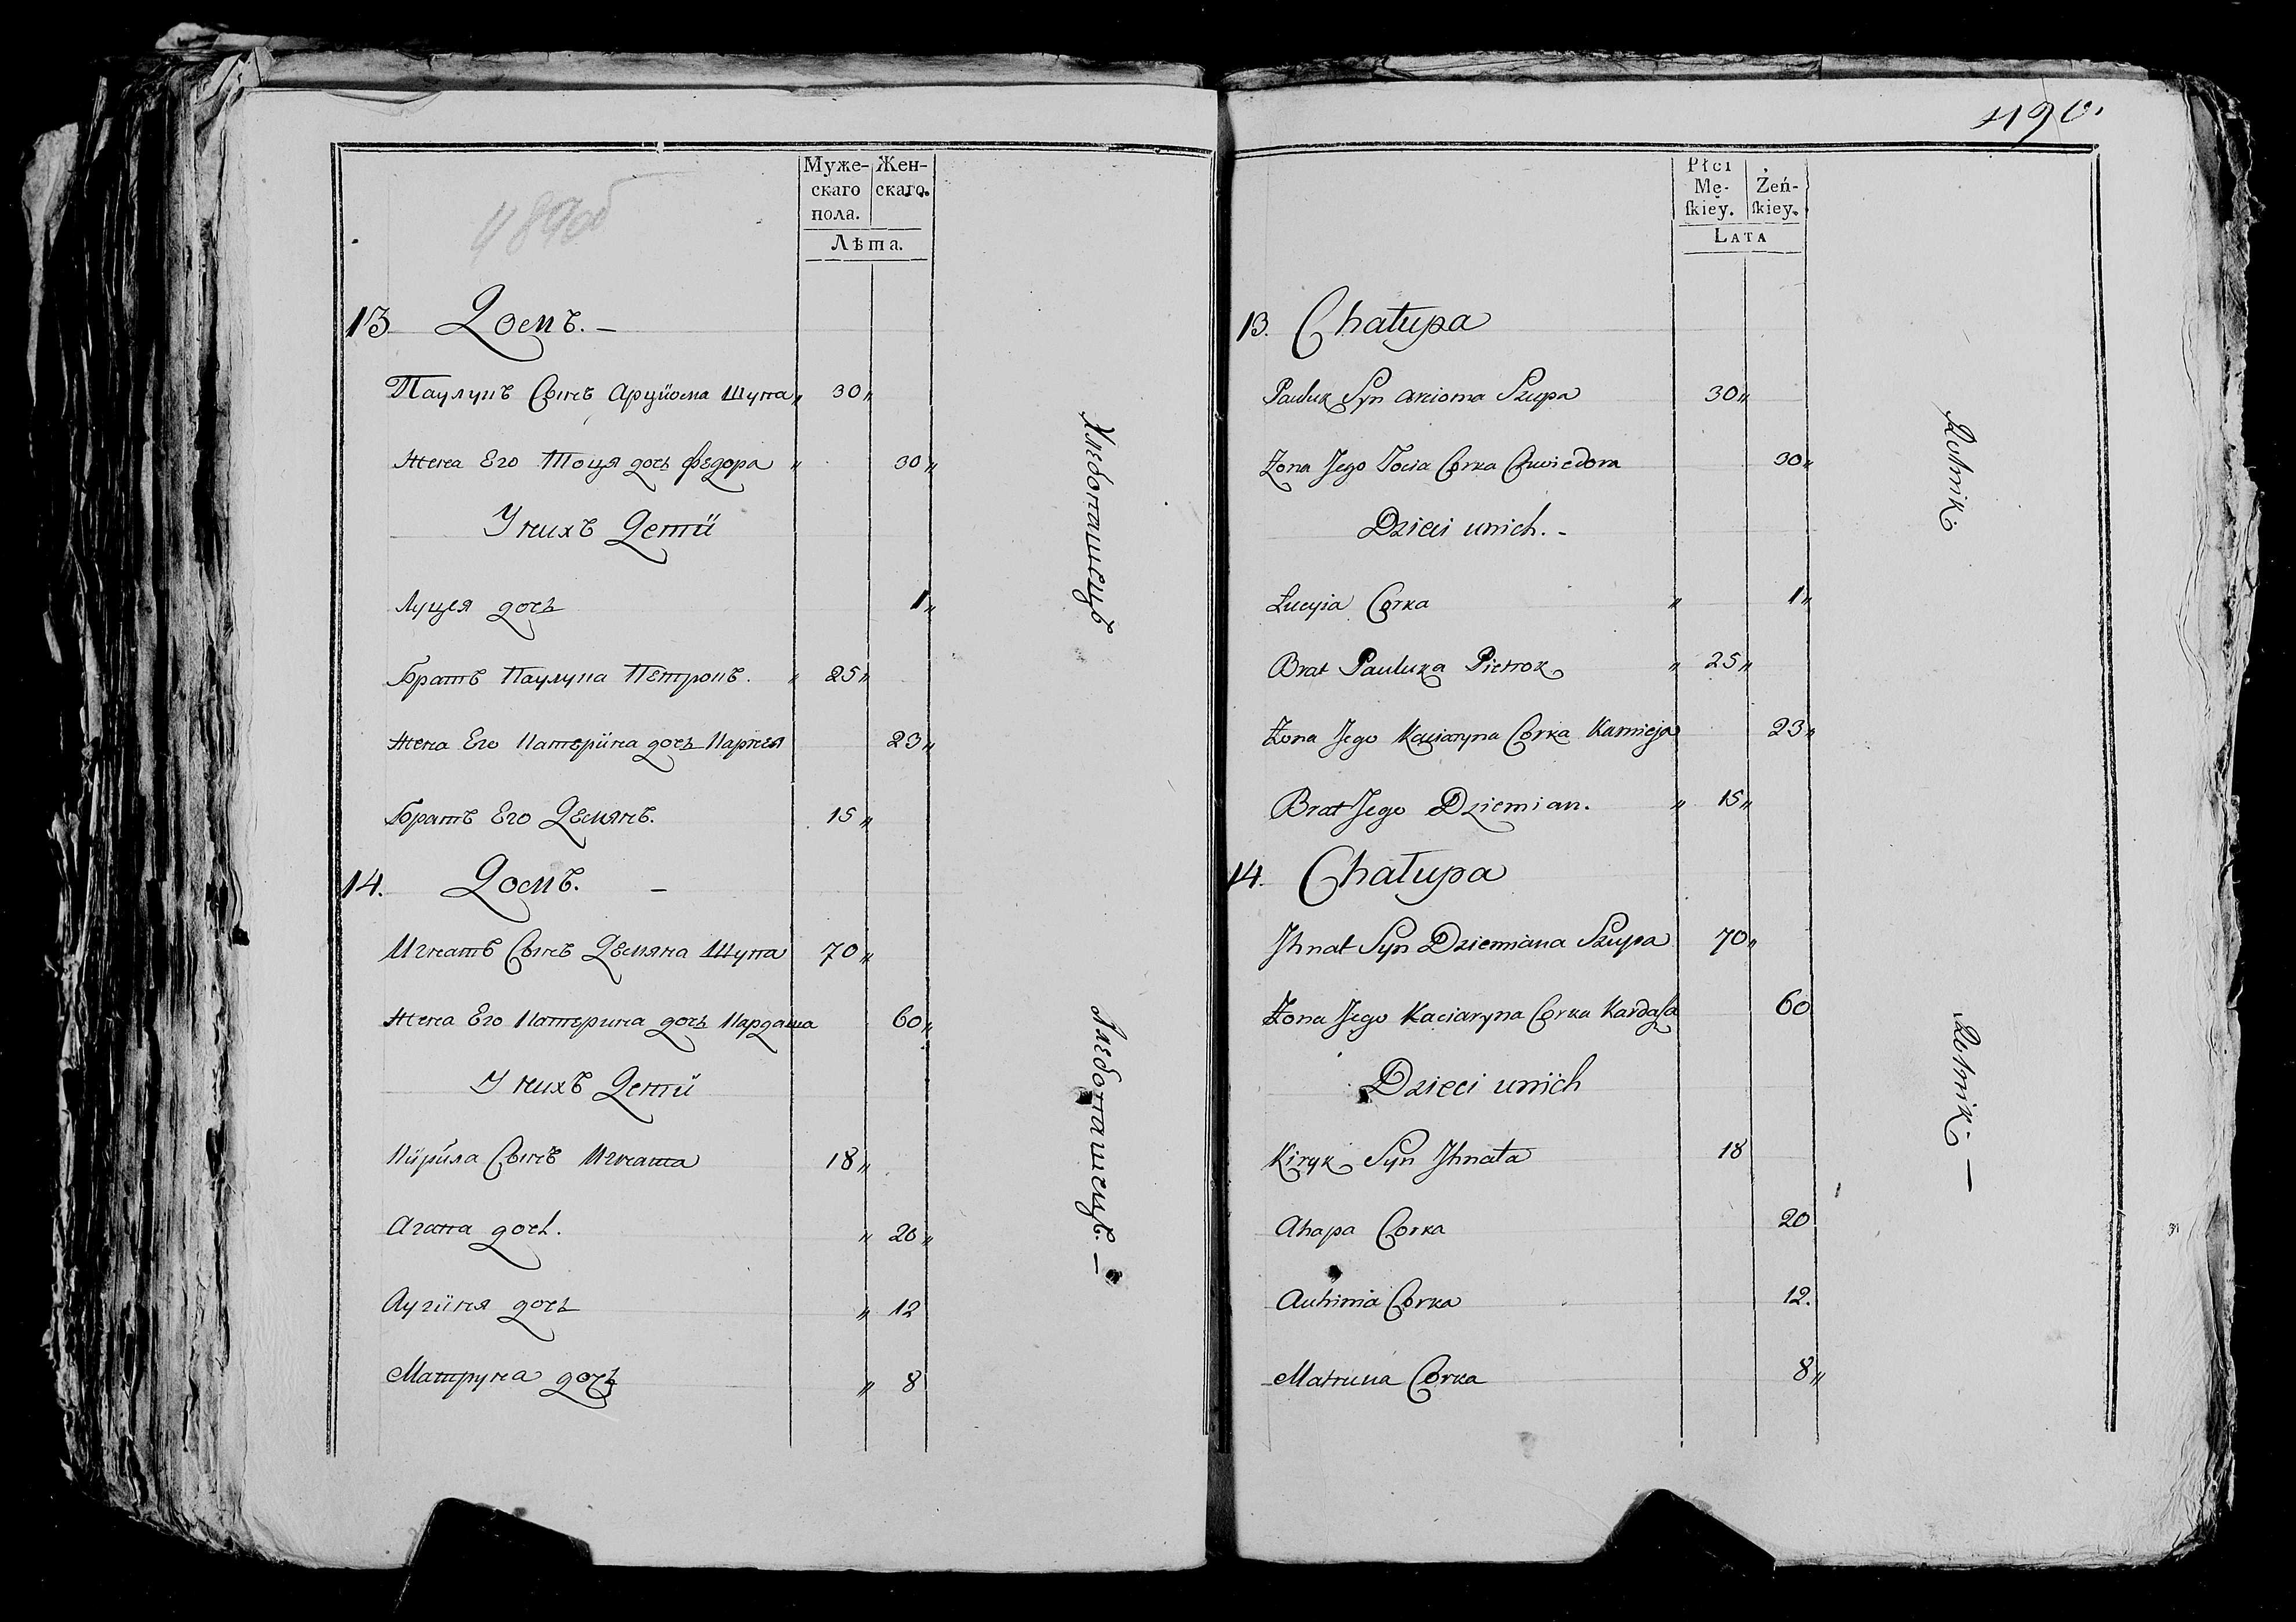 489об
Муже-
скаго
пола.
Жен-
скаго.
Лѣта.
13 Домъ. –
Паулукъ Сынъ Арцiома Шупа „ 30 „
Жена Его Тоця дочь Федора „ 30 „
У нихъ Дети
Луцея дочь 1 „
Братъ Паулука Петрокъ. „ 25 „
Жена Его Катерїна дочь Карнея 23 „
Братъ Его Демянъ. 15 „
Хлебопашецъ
14. Домъ. –
Игнатъ Сынъ Демяна Шупа 70 „
Жена Его Катерина дочь Кардаша 60 „
У нихъ Дети
Кирила Сынъ Игната 18 „
Агапа дочь. „ 20 „
Аугїня дочь „ 12
Матруна дочь „ 8
Хлебопашецъ. –
490.
Płci
Mę-
ſkiey.
Żeń-
ſkiey.
LATA
13. Chałupa
Pauluk Syn Arcioma Szupa 30 „
Żona Jego Tocia Corka Chwiedora 30 „
Dzieci unich. –
Lucyia Corka „ 1 „
Brat Pauluka Pietrok „ 25 „
Żona Jego Kaciaryna Corka Karnieja 23 „
Brat Jego Dziemian. „ 15 „
Rolnik
14. Chałupa
Jhnat Syn Dziemiana Szupa 70 „
Żona Jego Kaciaryna Corka Kardaſa 60
Dzieci unich
Kiryk Syn Jhnata 18
Ahapa Corka 20
Auhinia Corka 12.
Matruna Corka 8 „
Rolnik. –